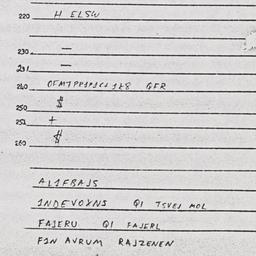 220 H ELSW
230 —
231 —
240 GFR
250 $
251 +
260 $
ALIFBAJS
INDEVOXNS QI TSVEJ MOL
FAJERU QI FAJERL
FIN AVRUM RAJZENEN